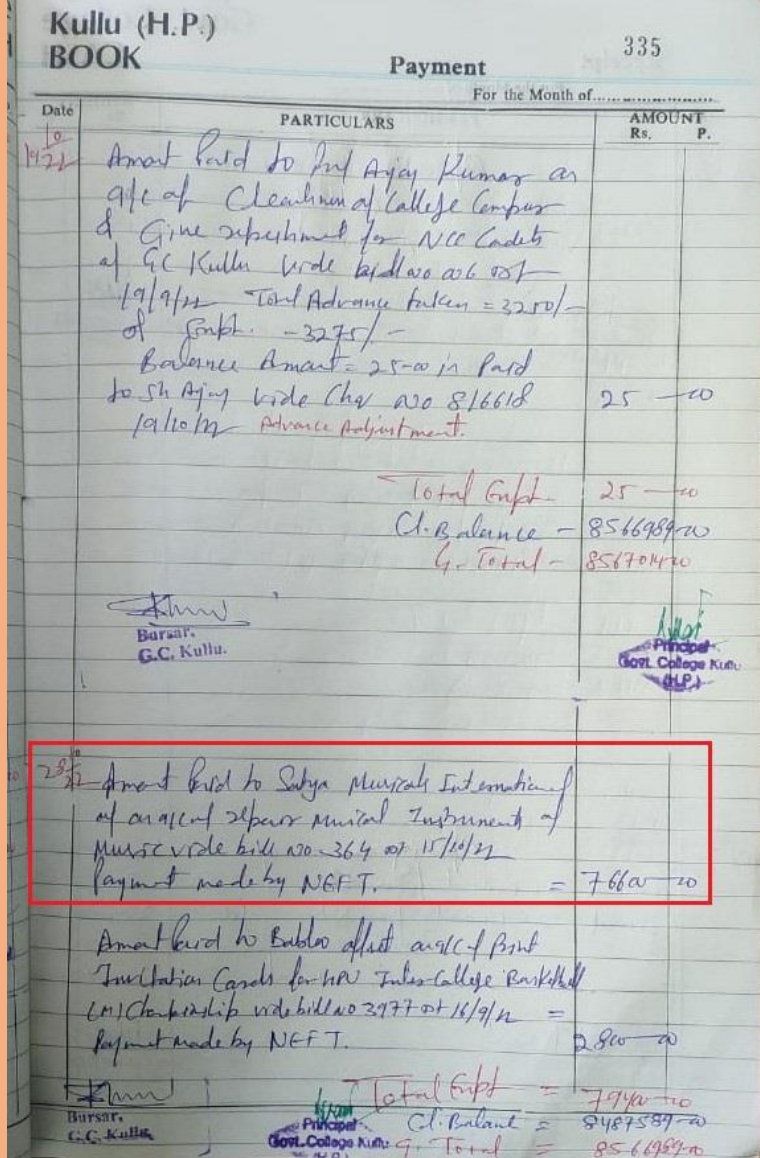 Kullu (H.P.)
BOOK
Payment
335
For the Month of
Date
PARTICULARS
AMOUNT
Rs. P.
19/10/22 Amount Paid to Prof Ajay Kumar on
a/c of Cleanliness of College Campus
& Give refreshment for NCC Cadets
of GC Kullu vide bill no
19/9/22 Total Advance taken = 3250/-
of Expt. - 3275/-
Balance Amount = 25-00 is Paid
to Sh Ajay vide Chq no 816618 25-00
19/10/22 Advance Adjustment.
Total Expt. 25-00
Cl. Balance - 8566989-00
G. Total - 8567014-00
Bursar,
G.C. Kullu.
Principal
Govt. College Kullu
(H.P.)
28/10/22 Amount Paid to Satya Musicals International
of on a/c of repair Musical Instruments of
Music vide bill no-364 dt 15/10/22
Payment made by NEFT. = 76600-00
Amount Paid to Babloo offset on a/c of Print
Invitation Cards for HPU Inter-College Basketball
(M) Championship vide bill no 3977 dt 16/9/22 =
Payment made by NEFT. 2800-00
Total Expt = 79400-00
Cl. Balance = 8487589-00
G. Total = 8566989-00
Bursar,
G.C. Kullu
Principal
Govt. College Kullu
(H.P.)